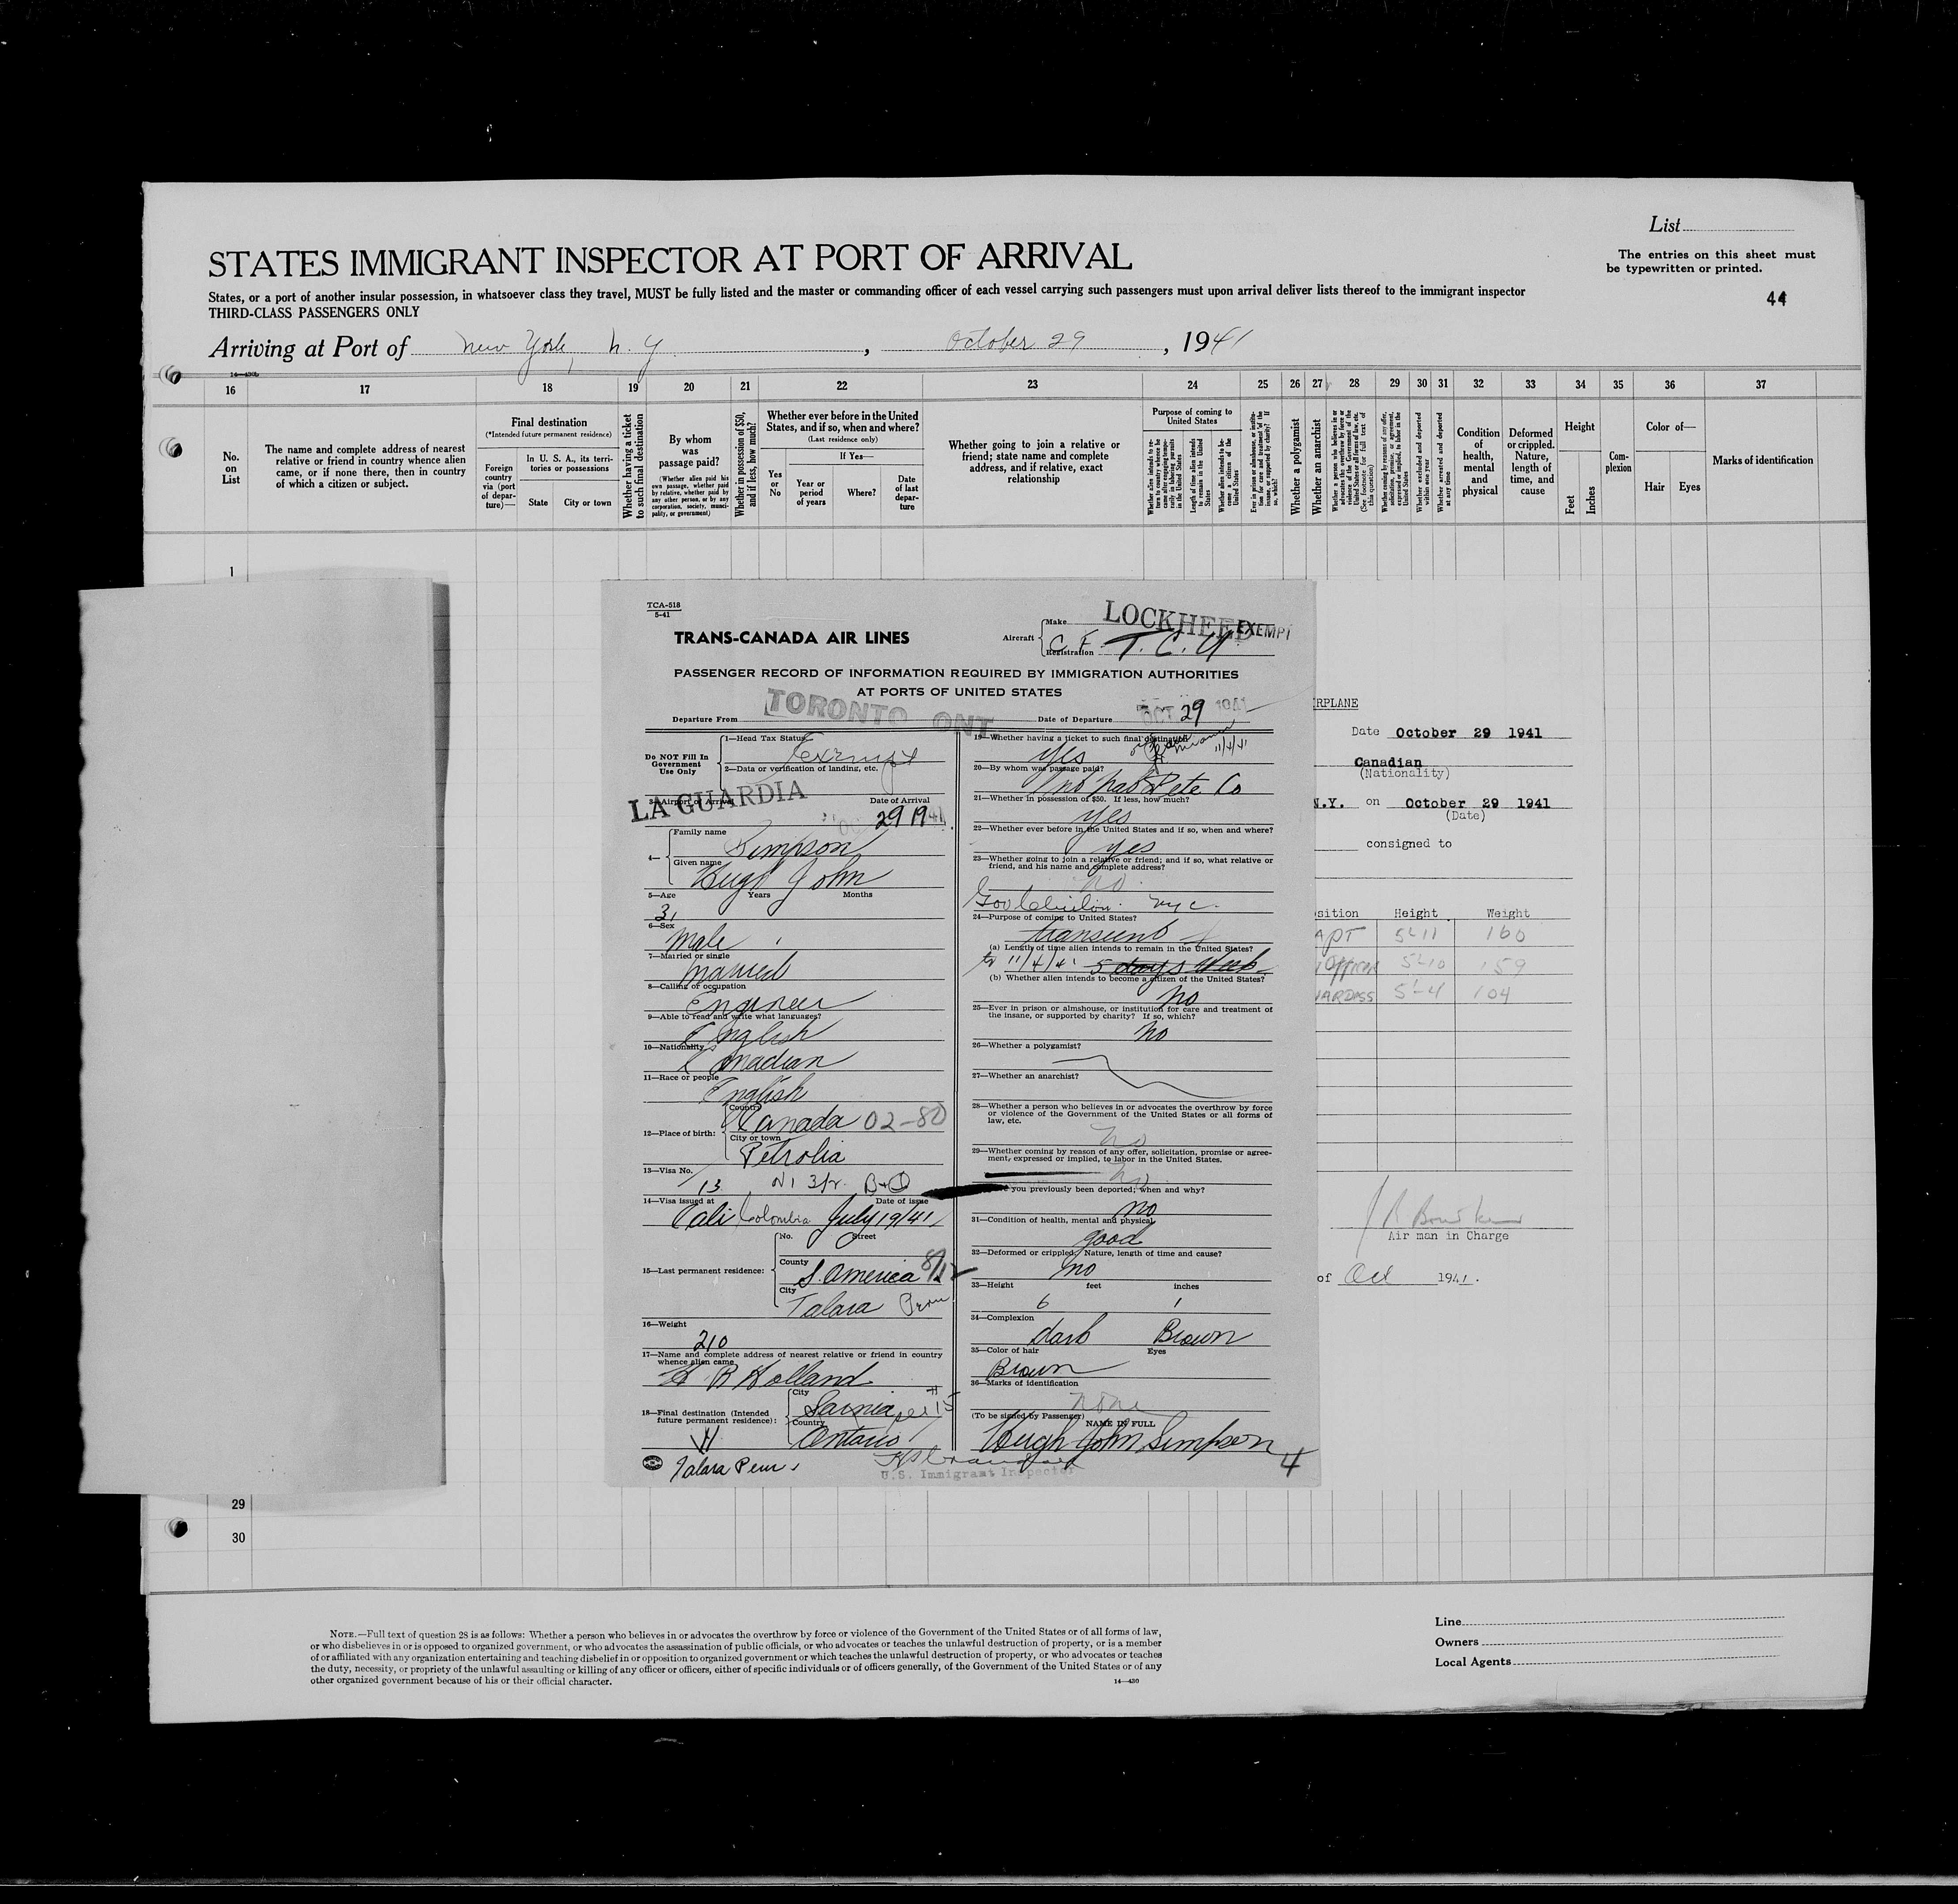 List
STATES IMMIGRANT INSPECTOR AT PORT OF ARRIVAL
The entries on this sheet must
be typewritten or printed.
States, or a port of another insular possession, in whatsoever class they travel, MUST be fully listed and the master or commanding officer of each vessel carrying such passengers must upon arrival deliver lists thereof to the immigrant inspector
THIRD-CLASS PASSENGERS ONLY
44
Arriving at Port of New York, N. Y , October 29 , 1941
16 17 18 19 20 21 22 23 24 25 26 27 28 29 30 31 32 33 34 35 36 37
No.
on
List
The name and complete address of nearest
relative or friend in country whence alien
came, or if none there, then in country
of which a citizen or subject.
Final destination
(*Intended future permanent residence)
Foreign
country
via (port
of depar-
ture)—
In U. S. A., its terri-
tories or possessions
State City or town
Whether having a ticket
to such final destination
By whom
was
passage paid?
(Whether alien paid his
own passage, whether paid
by relative, whether paid by
any other person, or by any
corporation, society, munici-
pality, or government)
Whether in possession of $50,
and if less, how much?
Whether ever before in the United
States, and if so, when and where?
(Last residence only)
Yes
or
No
If Yes—
Year or
period
of years
Where?
Date
of last
depar-
ture
Whether going to join a relative or
friend; state name and complete
address, and if relative, exact
relationship
Purpose of coming to
United States
Whether a polygamist
Whether an anarchist
Condition
of
health,
mental
and
physical
Deformed
or crippled.
Nature,
length of
time, and
cause
Height
Feet
Inches
Com-
plexion
Color of—
Hair Eyes
Marks of identification
1
TCA-518
5-41
TRANS-CANADA AIR LINES
Aircraft
Make LOCKHEED
EXEMPT
Registration C F T. C. U
PASSENGER RECORD OF INFORMATION REQUIRED BY IMMIGRATION AUTHORITIES
AT PORTS OF UNITED STATES
Departure From TORONTO ONT
Date of Departure OCT 29 1941
Do NOT Fill In
Government
Use Only
1—Head Tax Status
Exempt
2—Data or verification of landing, etc.
3—Airport of Arrival
LA GUARDIA
Date of Arrival
29 1941
4—
Family name
Simpson
Given name
Hugh John
5—Age Years Months
31
6—Sex
Male
7—Married or single
Married
8—Calling or occupation
Engineer
9—Able to read and write what languages?
English
10—Nationality
Canadian
11—Race or people
English
12—Place of birth:
Country
Canada 02-80
City or town
Petrolia
13—Visa No.
13
14—Visa issued at Date of issue
Cali Colombia July 19/41
15—Last permanent residence:
No. Street
County
S. America
City
Talara Peru
16—Weight
210
17—Name and complete address of nearest relative or friend in country
whence alien came
R Holland
18—Final destination (Intended
future permanent residence):
City
Sarnia
Country
Ontario
Talara Peru
U.S. Immigrant Inspector
19—Whether having a ticket to such final destination
Yes
11/4/41
20—By whom was passage paid?
Pete Co
21—Whether in possession of $50. If less, how much?
yes
22—Whether ever before in the United States and if so, when and where?
yes
23—Whether going to join a relative or friend; and if so, what relative or
friend, and his name and complete address?
no
Gov Clinton. nyc.
24—Purpose of coming to United States?
transient
(a) Length of time alien intends to remain in the United States?
to 11/4/41 5 days Week
(b) Whether alien intends to become a citizen of the United States?
no
25—Ever in prison or almshouse, or institution for care and treatment of
the insane, or supported by charity? If so, which?
no
26—Whether a polygamist?
27—Whether an anarchist?
28—Whether a person who believes in or advocates the overthrow by force
or violence of the Government of the United States or all forms of
law, etc.
no
29—Whether coming by reason of any offer, solicitation, promise or agree-
ment, expressed or implied, to labor in the United States.
no
you previously been deported; when and why?
no
31—Condition of health, mental and physical
good
32—Deformed or crippled. Nature, length of time and cause?
no
33—Height feet inches
6 1
34—Complexion
dark Brown
35—Color of hair Eyes
Brown
36—Marks of identification
none
(To be signed by Passenger)
NAME IN FULL
Hugh John Simpson
4
RPLANE
Date October 29 1941
Canadian
(Nationality)
N.Y. on October 29 1941
(Date)
consigned to
sition Height Weight
APT 5-11 160
OFFICER 5-10 159
WARDESS 5-4 104
Air man in Charge
of Oct 1941.
29
30
NOTE.—Full text of question 28 is as follows: Whether a person who believes in or advocates the overthrow by force or violence of the Government of the United States or of all forms of law,
or who disbelieves in or is opposed to organized government, or who advocates the assassination of public officials, or who advocates or teaches the unlawful destruction of property, or is a member
of or affiliated with any organization entertaining and teaching disbelief in or opposition to organized government or which teaches the unlawful destruction of property, or who advocates or teaches
the duty, necessity, or propriety of the unlawful assaulting or killing of any officer or officers, either of specific individuals or of officers generally, of the Government of the United States or of any
other organized government because of his or their official character.
14—430
Line
Owners
Local Agents